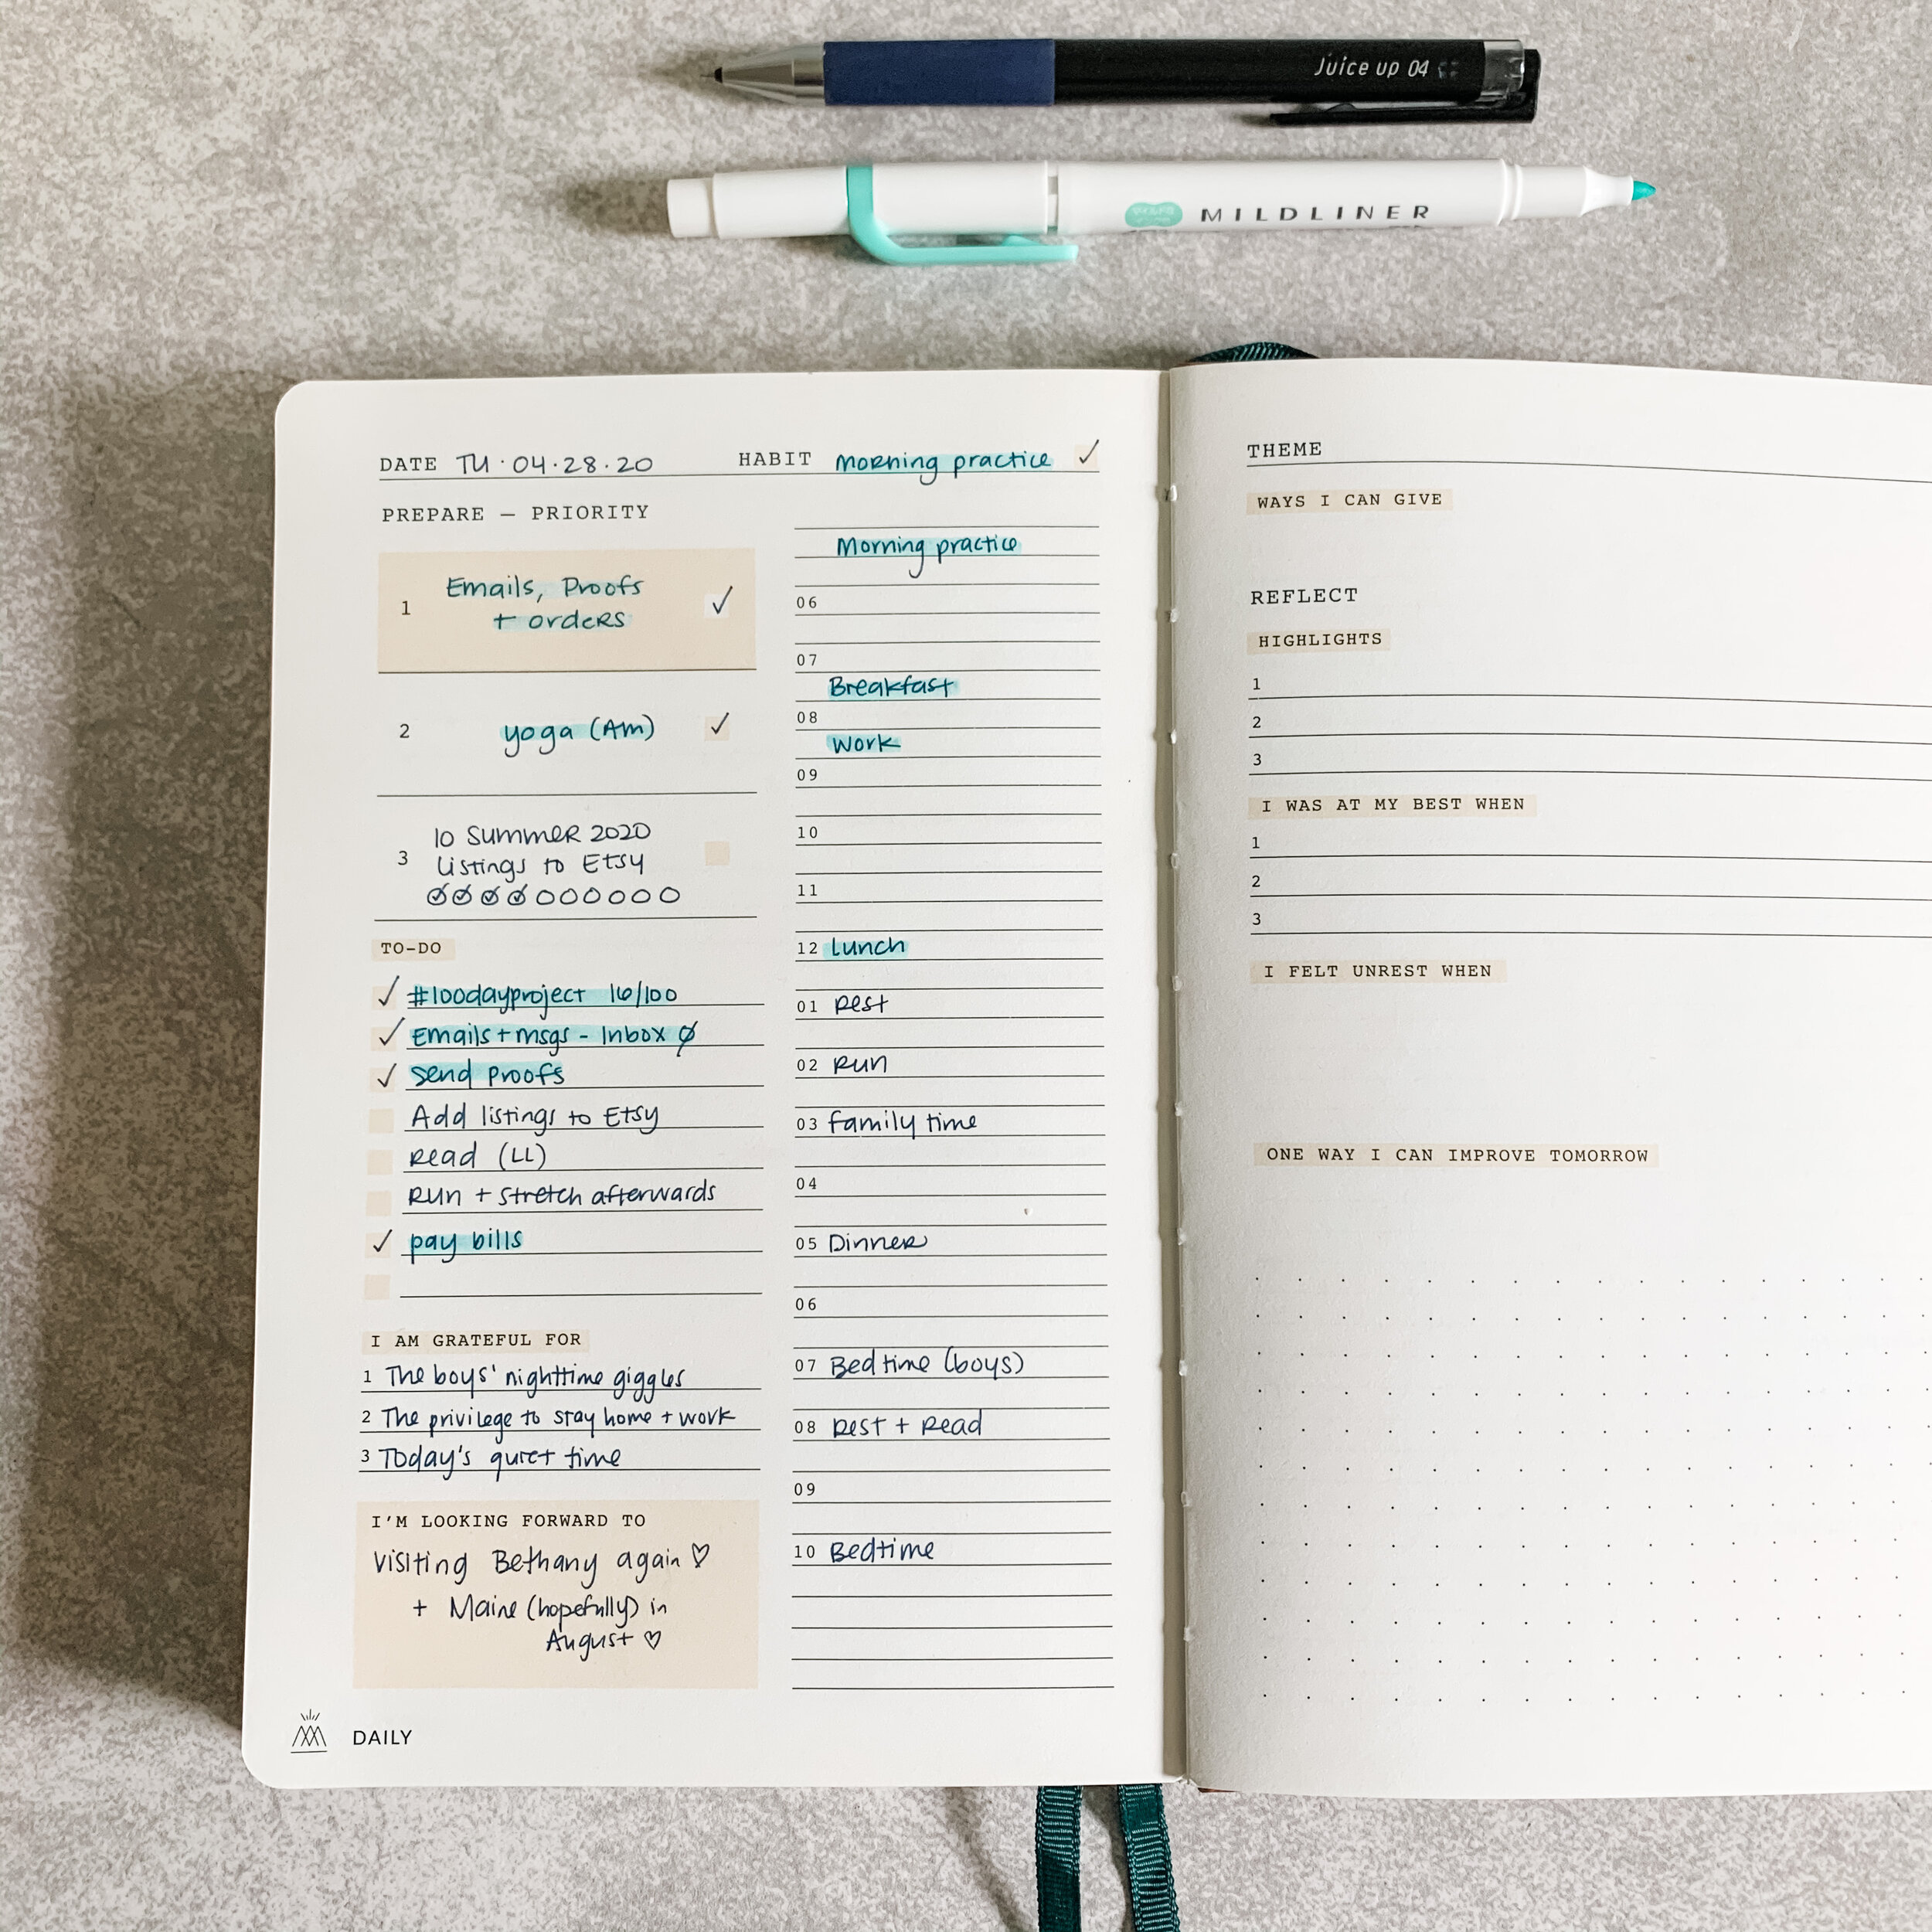 Juice up 04
MILDLINER
DATE TU · 04 · 28 · 20
HABIT morning practice ✓
PREPARE — PRIORITY
1 Emails, Proofs
+ orders ✓
2 yoga (Am) ✓
10 Summer 2020
3 Listings to Etsy
TO-DO
✓ #100dayproject 16/100
✓ Emails + msgs - Inbox Ø
✓ Send Proofs
Add listings to Etsy
Read (LL)
Run + stretch afterwards
✓ pay bills
I AM GRATEFUL FOR
1 The boys' nighttime giggles
2 The privilege to stay home + work
3 Today's quiet time
I'M LOOKING FORWARD TO
Visiting Bethany again ♡
+ Maine (hopefully) in
August ♡
DAILY
Morning practice
06
07
Breakfast
08
Work
09
10
11
12 Lunch
01 Rest
02 Run
03 Family time
04
05 Dinner
06
07 Bedtime (boys)
08 Rest + Read
09
10 Bedtime
THEME
WAYS I CAN GIVE
REFLECT
HIGHLIGHTS
1
2
3
I WAS AT MY BEST WHEN
1
2
3
I FELT UNREST WHEN
ONE WAY I CAN IMPROVE TOMORROW